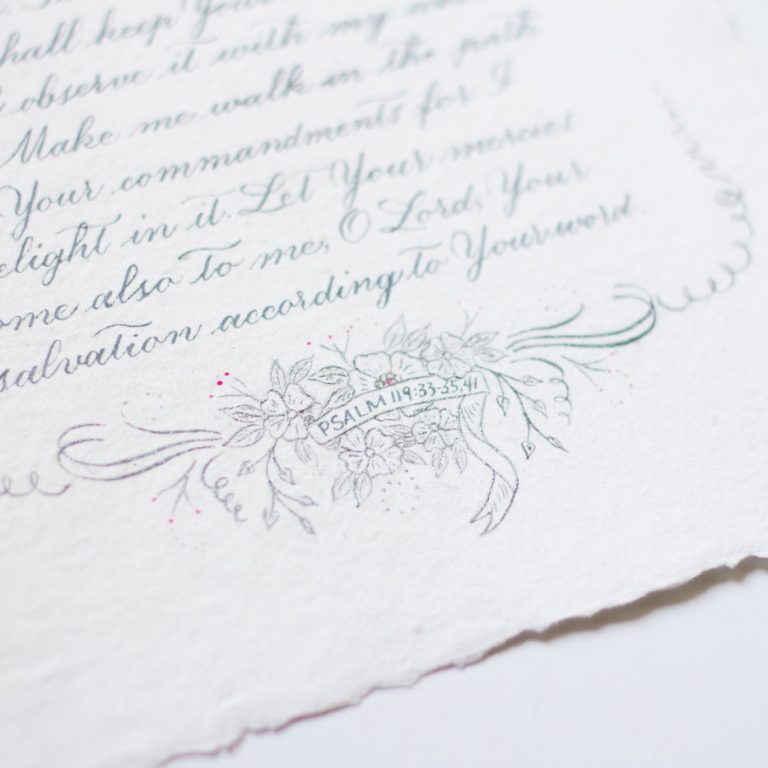 shall keep Your
observe it with my
Make me walk in the path
Your commandments for I
elight in it. Let Your mercies
ome also to me, O Lord, Your
salvation according to Your word.
PSALM 119:33-35,41